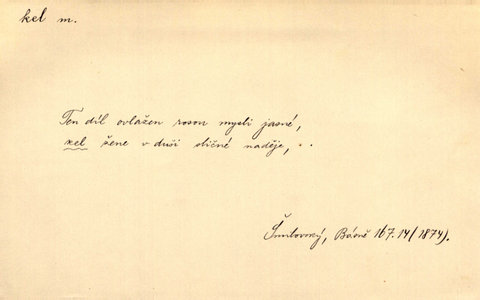 kel m.
Ten díl ovlažen rosou mysli jasné,
kel žene v duši sličné naděje, . .
Šmilovský, Básně 167.14 (1874).